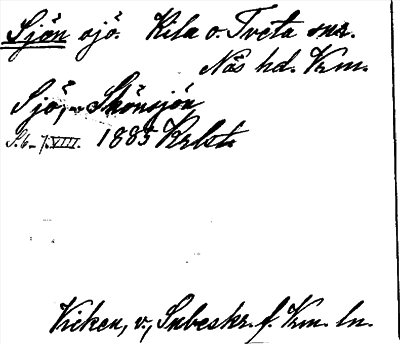 Sjön sjö. Kila o. Tveta snr.
Näs hd. Vrm.
Sjö, Skönsjön
S. 6-7.VIII. 1885 Krlst.
Vicken, v., Snbeskr. f. Vrm. ln.